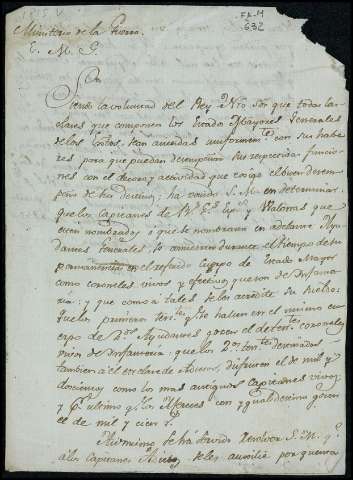 FA-M
632
Ministerio de la Guerra.
E. M. G.
Siendo la voluntad del Rey Ntro. Sor. que todas las
clases que componen los Estados Mayores Generales
de los sean atendidas uniformemte. con sus habe
res para que puedan desempeñar sus respectivas funcio
nes con el decoro y actividad que exige el buen desem
peño de sus destinos; ha venido S. M. en determinar
que los Capitanes de Rs. Gs. Esp. y Walonas que
esten nombrados, ó que se nombraren en adelante Ayu
dantes Generales, lo durante el tiempo de su
permanencia en el referido Cuerpo de Estado Mayor
como coroneles vivos y efectivos que son de Infante
ria: y que como a tales se les acredite su sueldo:
que los primeros tentes. qe. se hallen en el mismo cu
erpo de Ayudantes gocen el de tentes. coroneles
vivos de Infanteria: que los 2os. tentes. destinados
tambien á él en clase de disfruten el de mil y
docientos como los mas antiguos capitanes vivos
y pr. ultimo qe. los Alfereces con igual destino gocen
el de mil y cien rs.
Asimismo se ha servido resolver S. M. qe.
á los Capitanes se les auxilie por quenta